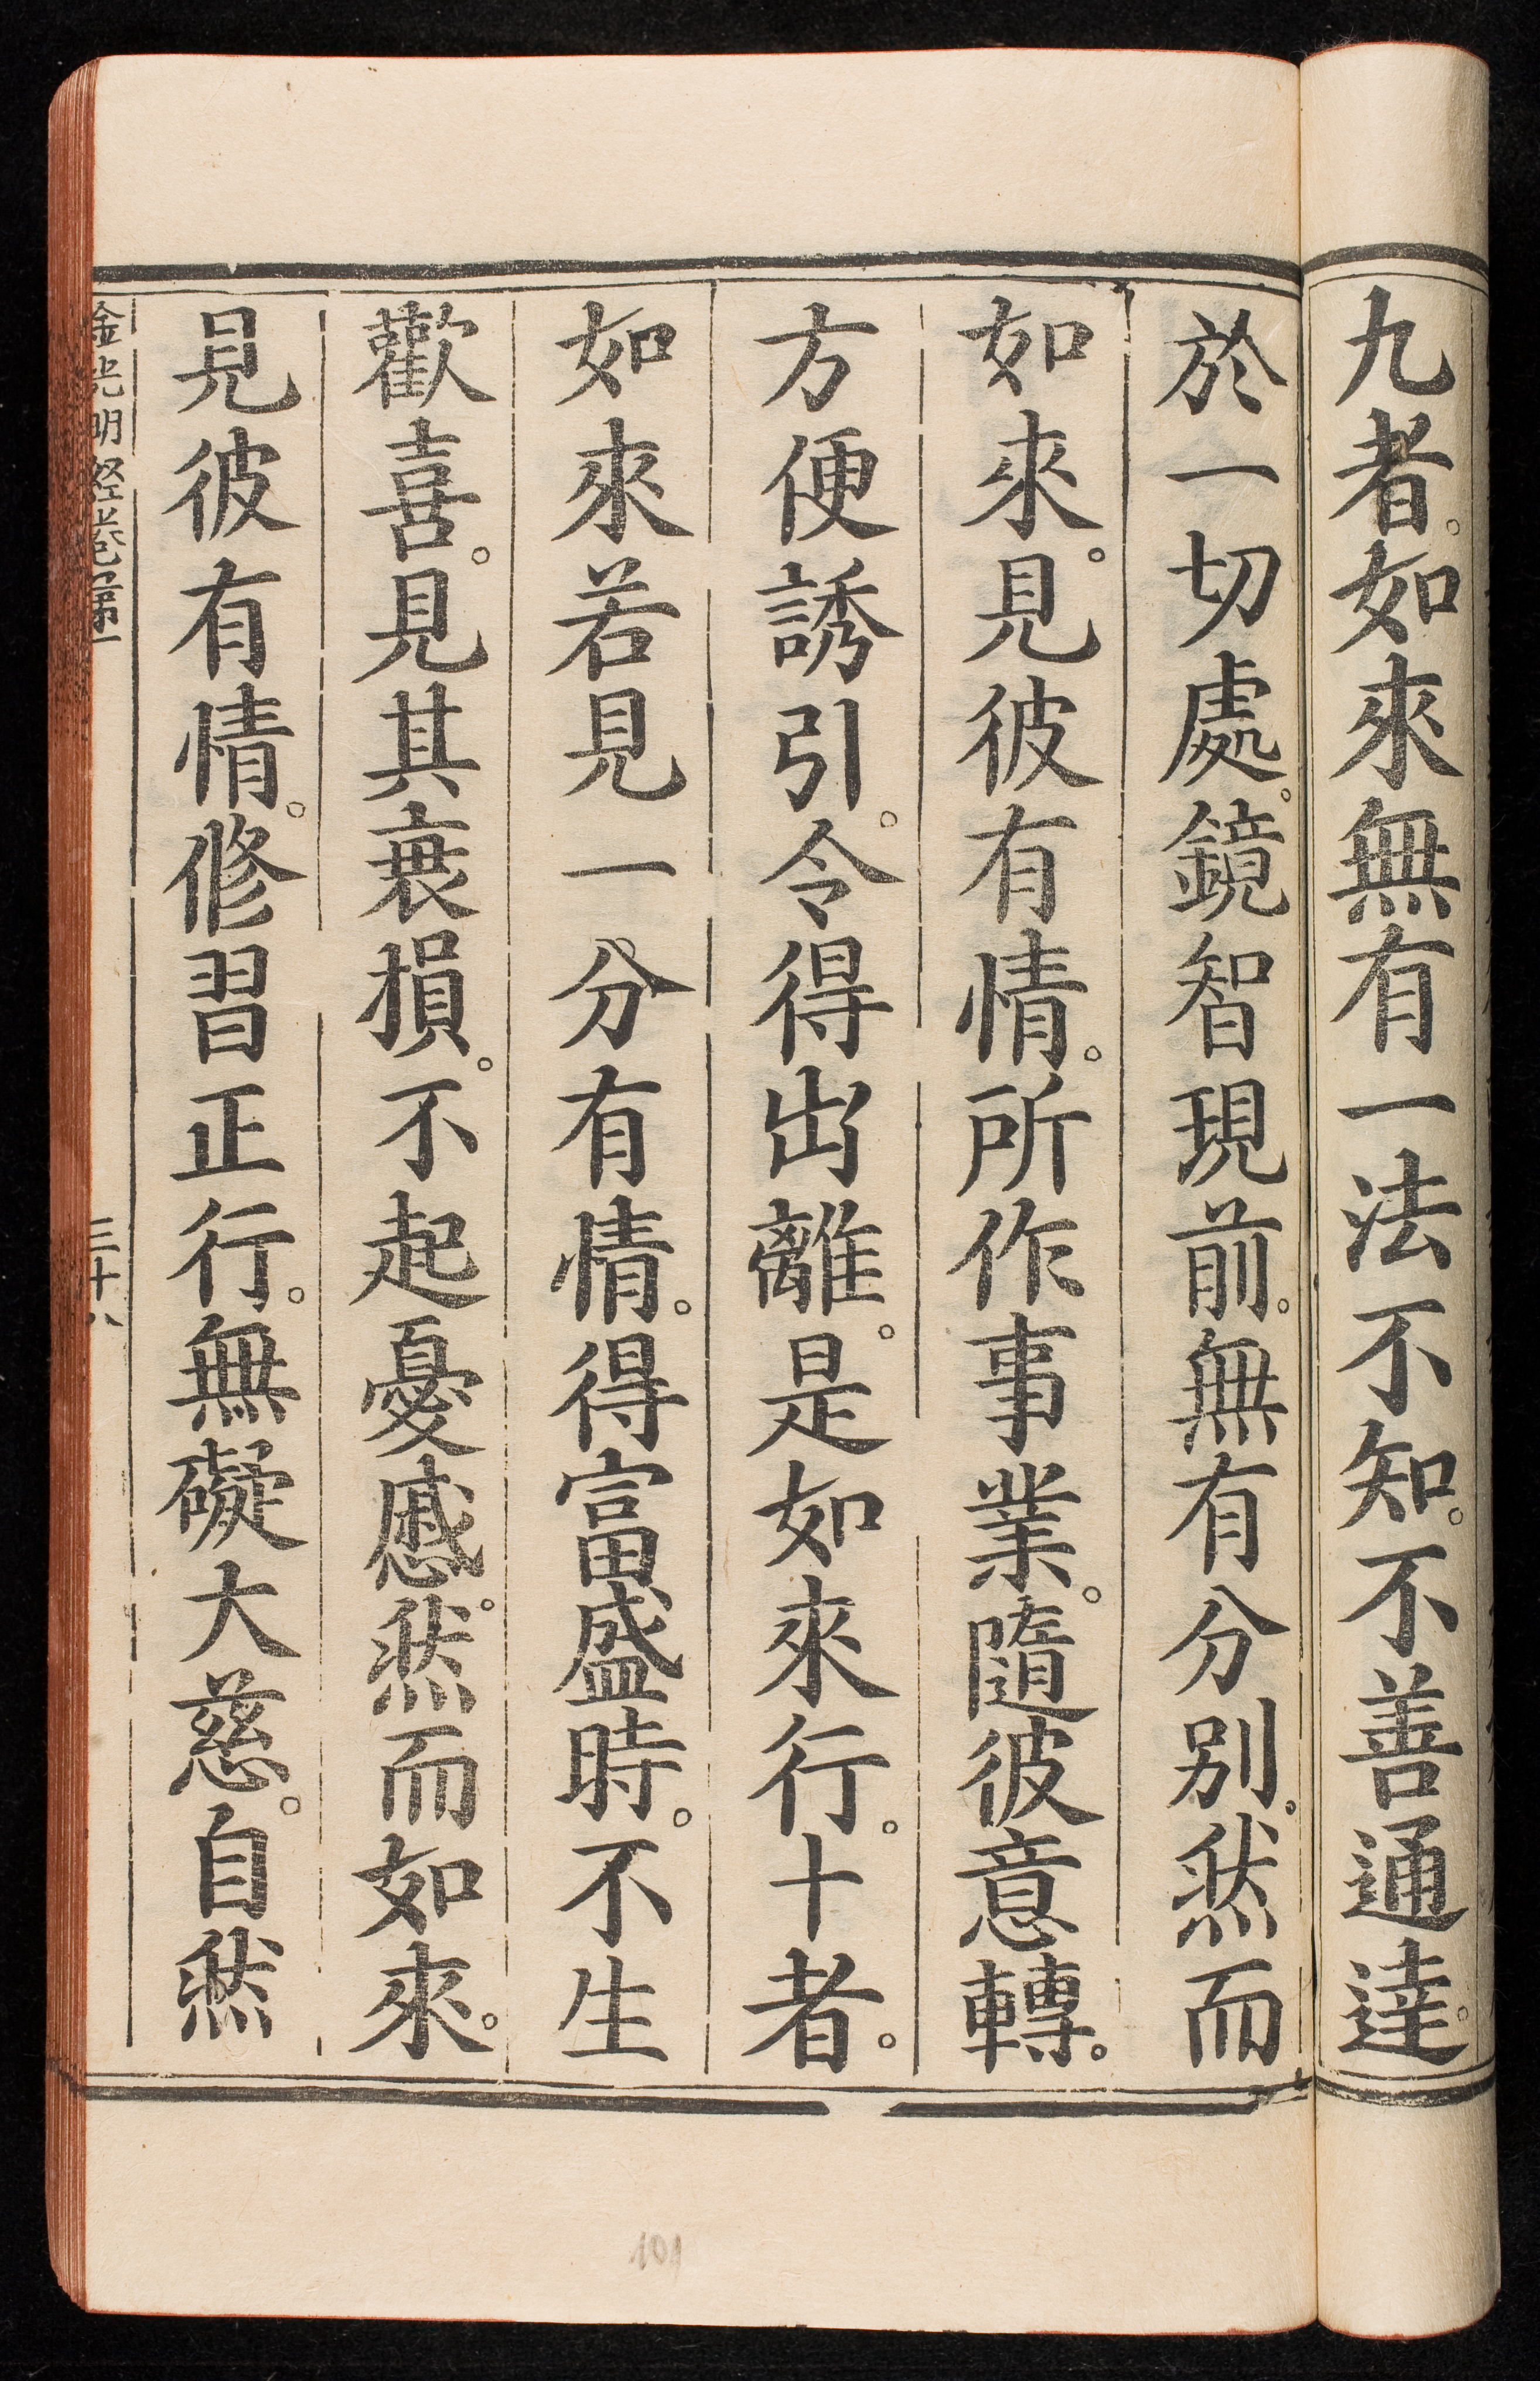 九者。如來無有一法不知。不善通達。
於一切處。鏡智現前。無有分别。然而
如來。見彼有情。所作事業。隨彼意轉。
方便誘引。令得出離。是如來行。十者。
如來若見一分有情。得富盛時。不生
歡喜。見其衰損。不起憂慼。然而如來。
見彼有情。修習正行。無礙大慈。自然
金光明經卷第一
三十六
101